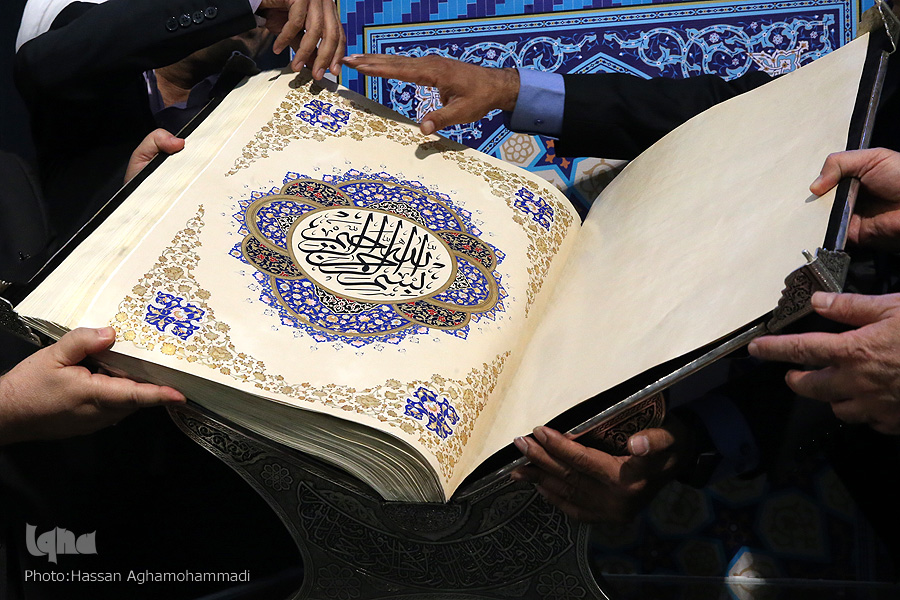 بسم الله الرحمن الرحيم
iqna
Photo:Hassan Aghamohammadi